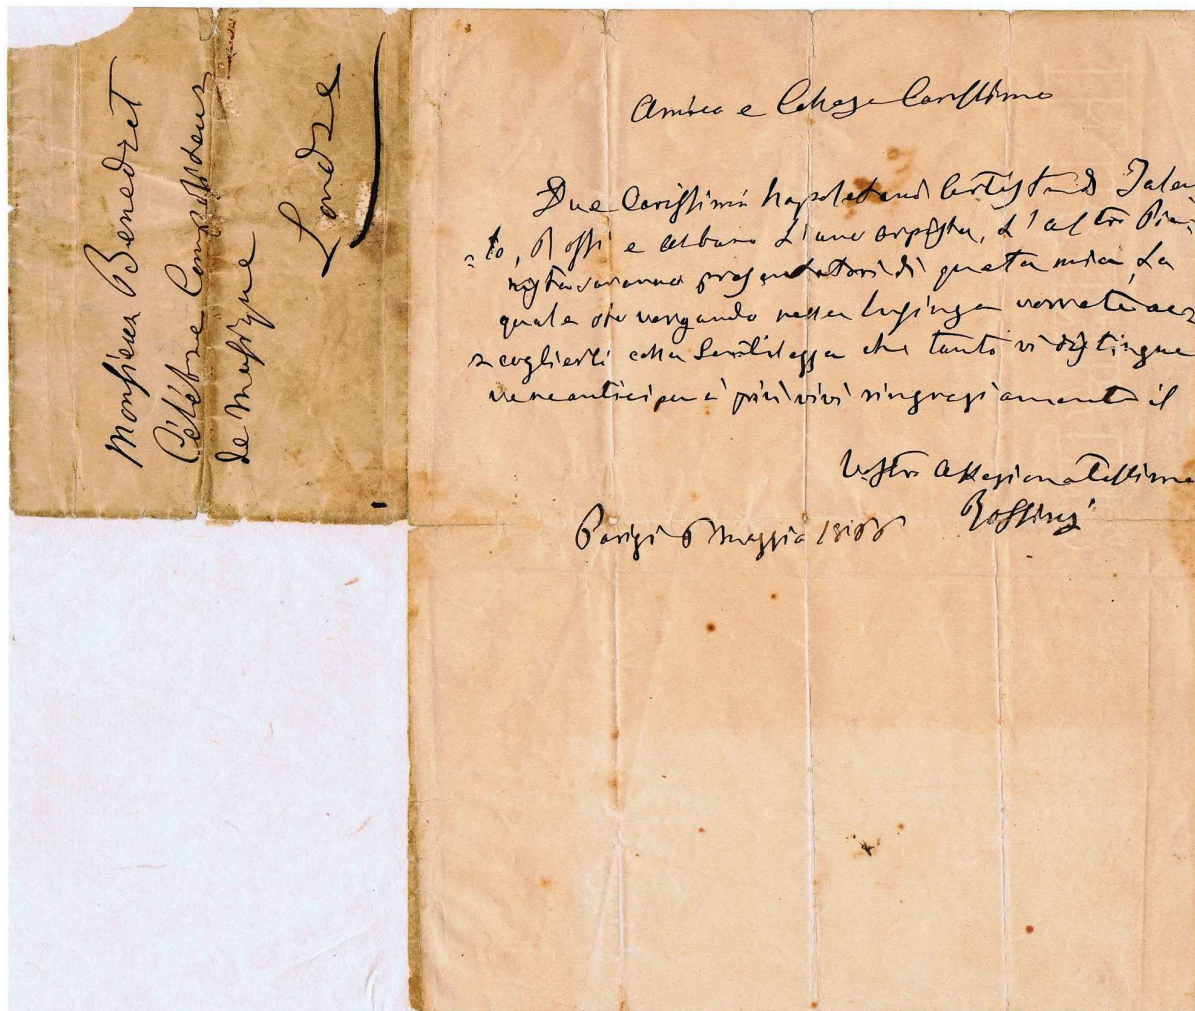 Monsieur Benedict
Célébre Compositeur
de Musique
Londre
Amico e Collega Carissimo
Due Carissimi Napoletani Artisti di Talen
=to, Rossi e Albano L'uno arpista, L'altro Pia=
nista saranno presentatori di questa mia, La
quale sto vergando nella lusinga vorrete ac=
=coglierli colla Gentilezza che tanto vi distingue
ve ne anticipa i più vivi ringraziamenti il
Vostro Affezionatissimo
Rossini
Parigi 6 Maggio